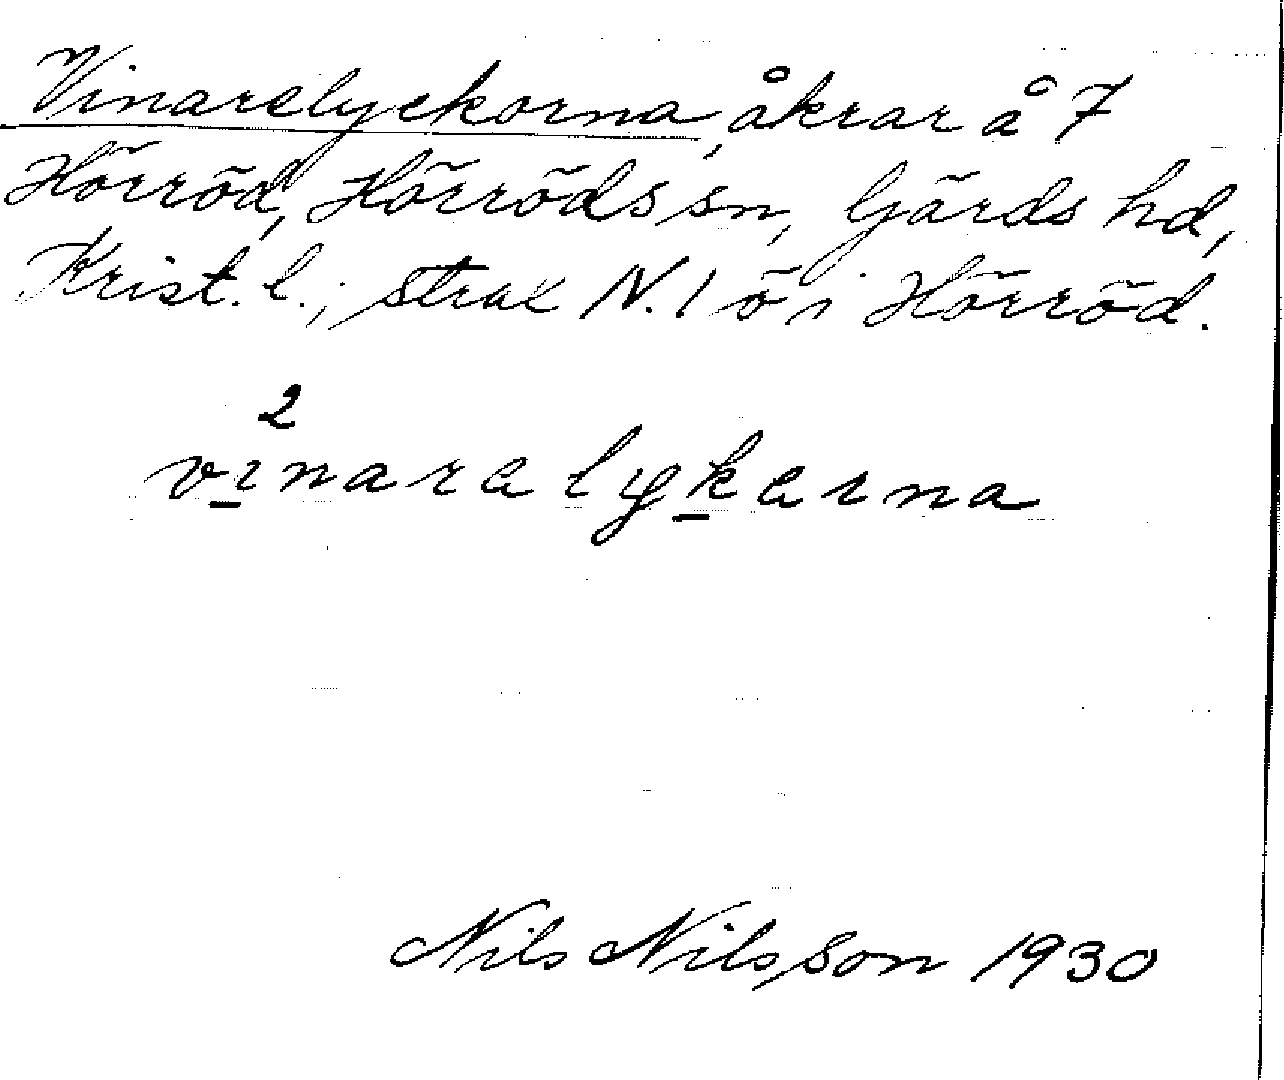 Vinarelyckorna, åkrar å 7
Hörröd, Hörröds sn, Gärds hd,
Krist. l.; strax N. l ö i Hörröd.
2
vinarelykerna
Nils Nilsson 1930